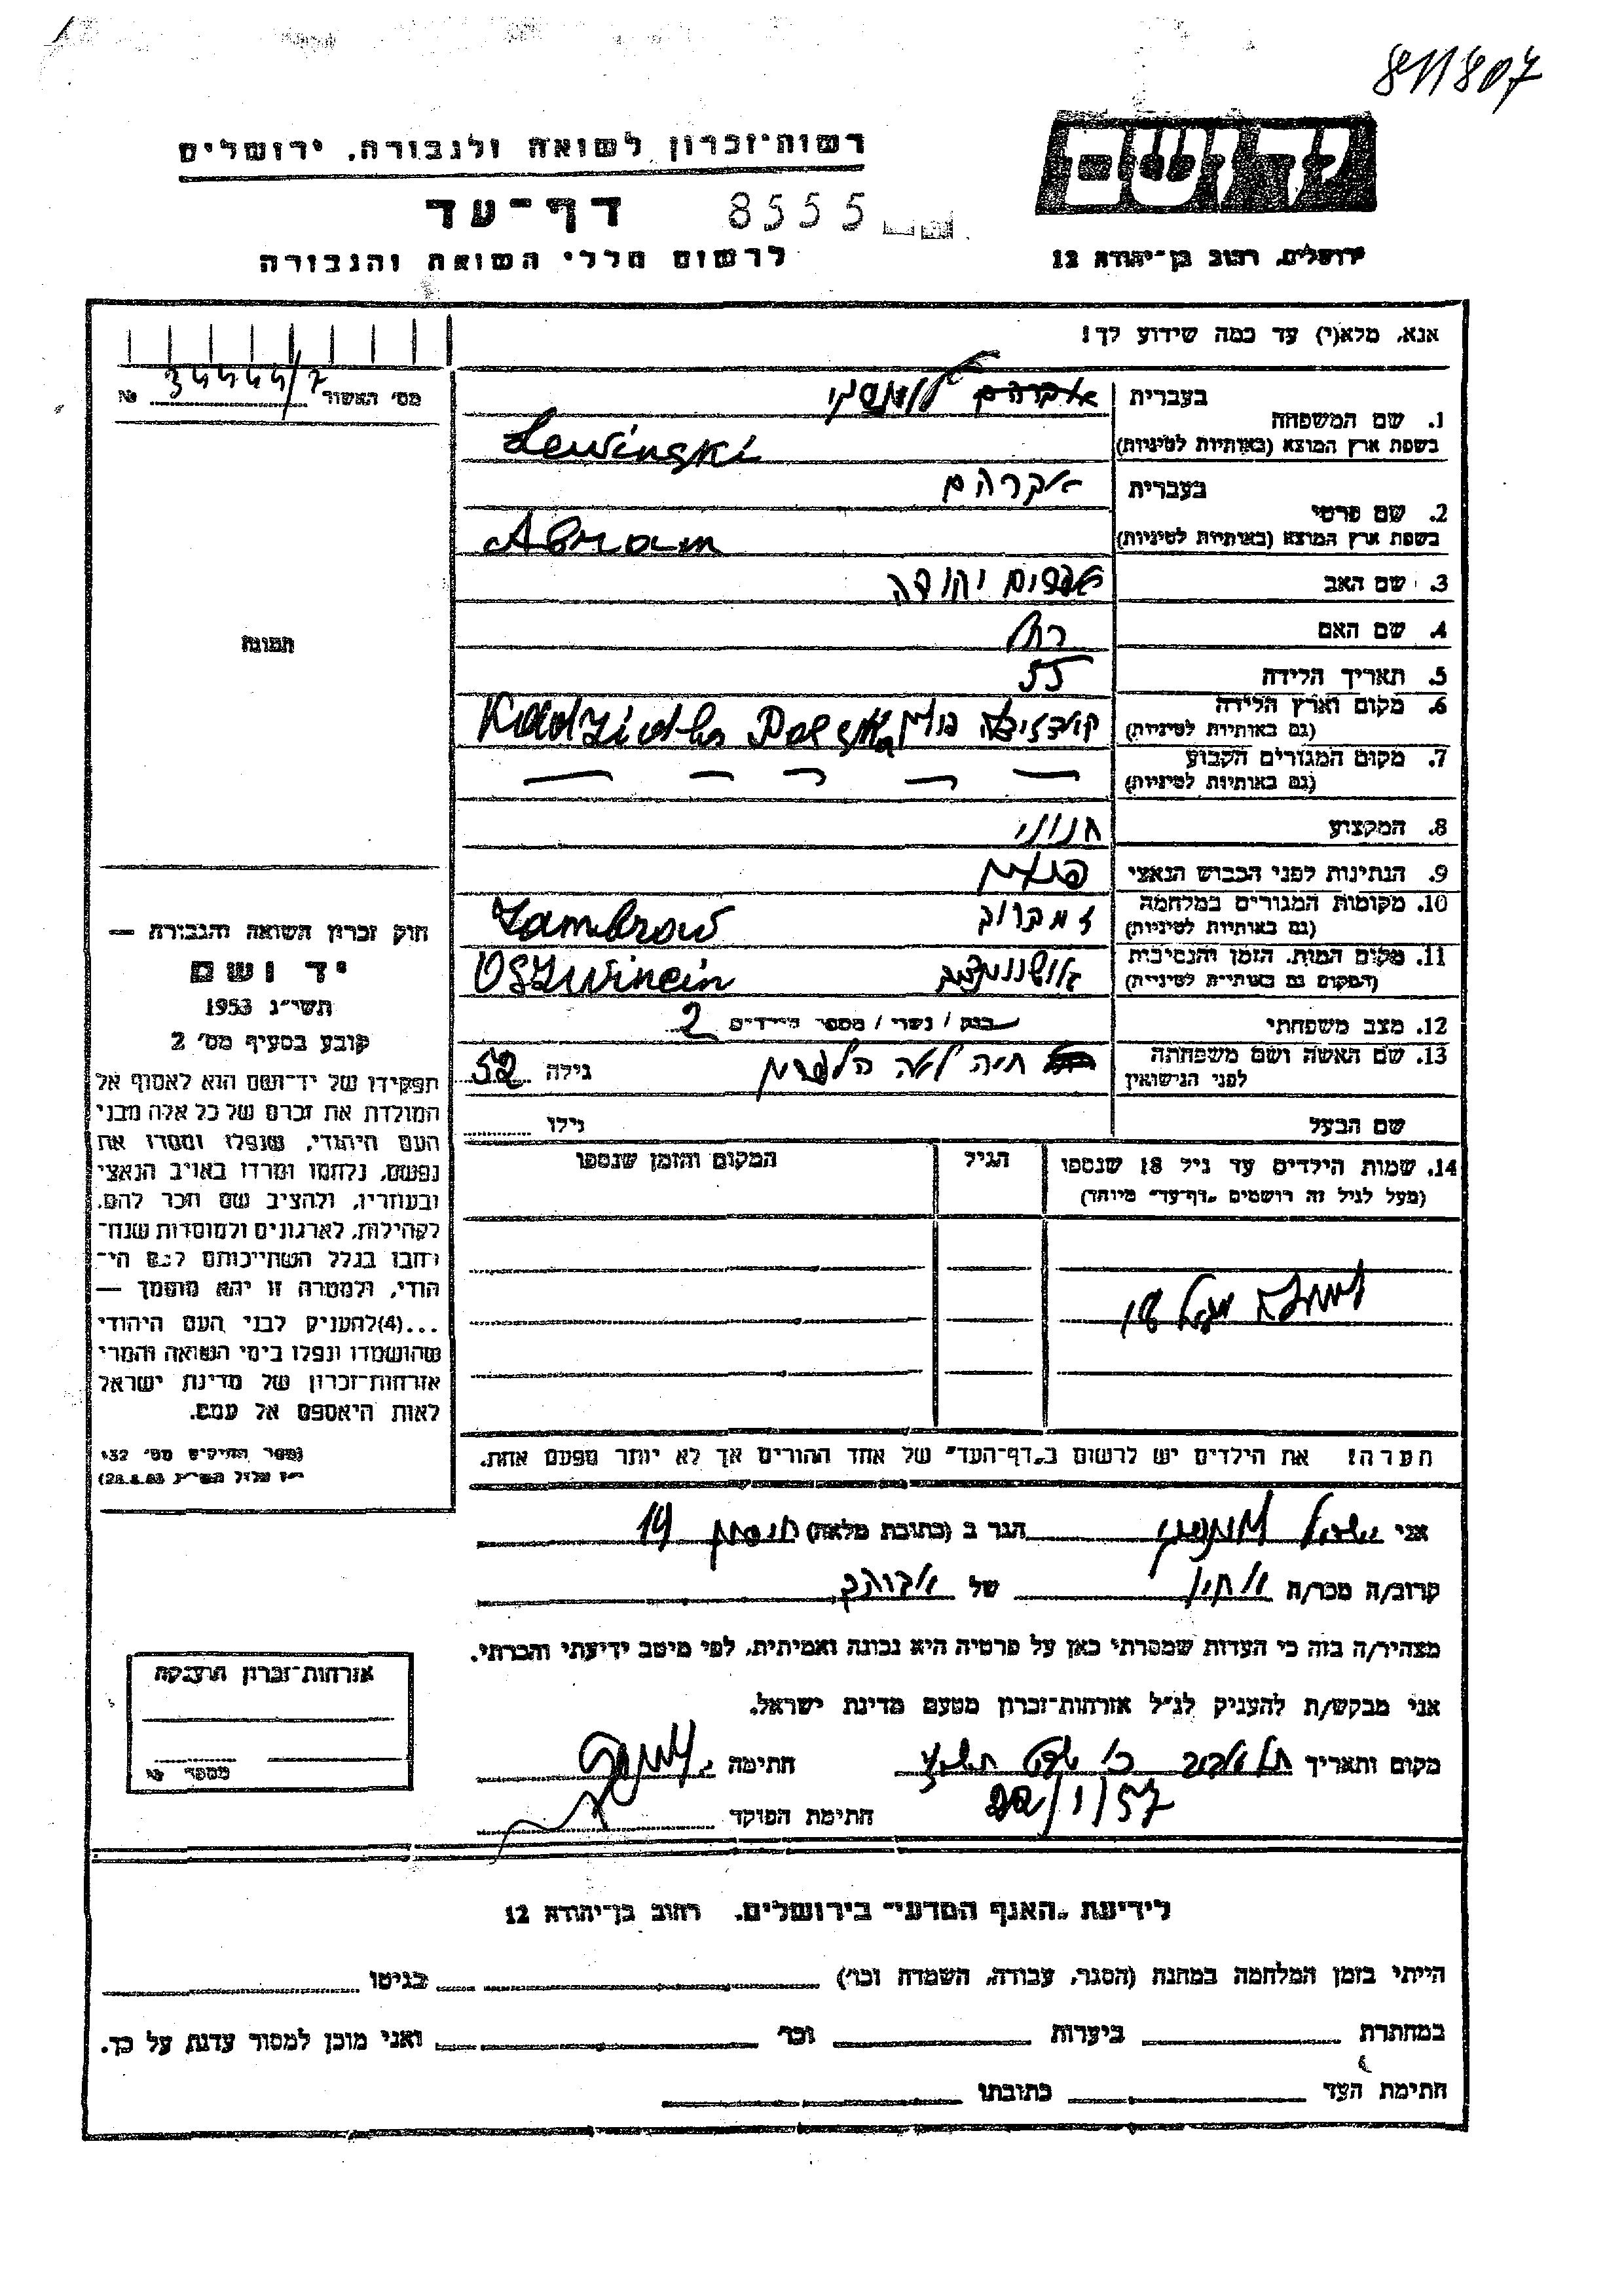 811807
יד ושם
רשות־זכרון לשואה ולגבורה, ירושלים
דף־עד
8555
לרשום חללי השואה והגבורה
ירושלים, רחוב בן־יהודה 12
אנא, מלא(י) עד כמה שידוע לך!
מס׳ האשור № 34444/7
תמונה
1. שם המשפחה
בעברית אברהם לוינסקי
בשפת ארץ המוצא (באותיות לטיניות) Lewinski
2. שם פרטי
בעברית אברהם
בשפת ארץ המוצא (באותיות לטיניות) Abram
3. שם האב אפרים יהודה
4. שם האם רחל
5. תאריך הלידה 55
6. מקום וארץ הלידה
(גם באותיות לטיניות) פולין Polska
7. מקום המגורים הקבוע
(גם באותיות לטיניות) — — — — —
8. המקצוע חנוני
9. הנתינות לפני הכבוש הנאצי פולין
10. מקומות המגורים במלחמה
(גם באותיות לטיניות) זמברוב Zambrow
11. מקום המות, הזמן והנסיבות
(המקום גם באותיות לטיניות) Oszwincin
12. מצב משפחתי רוק / נשוי / מספר הילדים 2
13. שם האשה ושם משפחתה
לפני הנישואין חיה לאה הלפרין גילה 52
שם הבעל גילו
14. שמות הילדים עד גיל 18 שנספו
(מעל לגיל זה רושמים „דף־עד״ מיוחד)
הגיל
המקום והזמן שנספו
למעלה מגיל 18
הערה! את הילדים יש לרשום ב„דף־העד״ של אחד ההורים אך לא יותר מפעם אחת.
חוק זכרון השואה והגבורה —
יד ושם
תשי״ג 1953
קובע בסעיף מס׳ 2
תפקידו של יד־ושם הוא לאסוף אל
המולדת את זכרם של כל אלה מבני
העם היהודי, שנפלו ומסרו את
נפשם, נלחמו ומרדו באויב הנאצי
ובעוזריו, ולהציב שם וזכר להם,
לקהילות, לארגונים ולמוסדות שנח־
רבו בגלל השתייכותם לעם הי־
הודי, ולמטרה זו יהא מוסמך —
...(4)להעניק לבני העם היהודי
שהושמדו ונפלו בימי השואה והמרי
אזרחות־זכרון של מדינת ישראל
לאות היאספם אל עמם.
(ספר החוקים מס׳ 132
י״ז אלול תשי״ג 28.8.53)
אני ישראל לוינסקי הגר ב (כתובת מלאה) 19
קרוב/ה מכר/ה אחיו של אברהם
מצהיר/ה בזה כי העדות שמסרתי כאן על פרטיה היא נכונה ואמיתית, לפי מיטב ידיעתי והכרתי.
אני מבקש/ת להעניק לנ״ל אזרחות־זכרון מטעם מדינת ישראל.
מקום ותאריך תל אביב כ׳ שבט תשי״ז
22/1/57
חתימה
חתימת הפוקד
אזרחות־זכרון הוענקה
מספר №
לידיעת „האגף המדעי״ בירושלים, רחוב בן־יהודה 12
הייתי בזמן המלחמה במחנה (הסגר, עבודה, השמדה וכו׳) בגיטו
במחתרת ביערות וכו׳ ואני מוכן למסור עדות על כך.
חתימת העד כתובתו